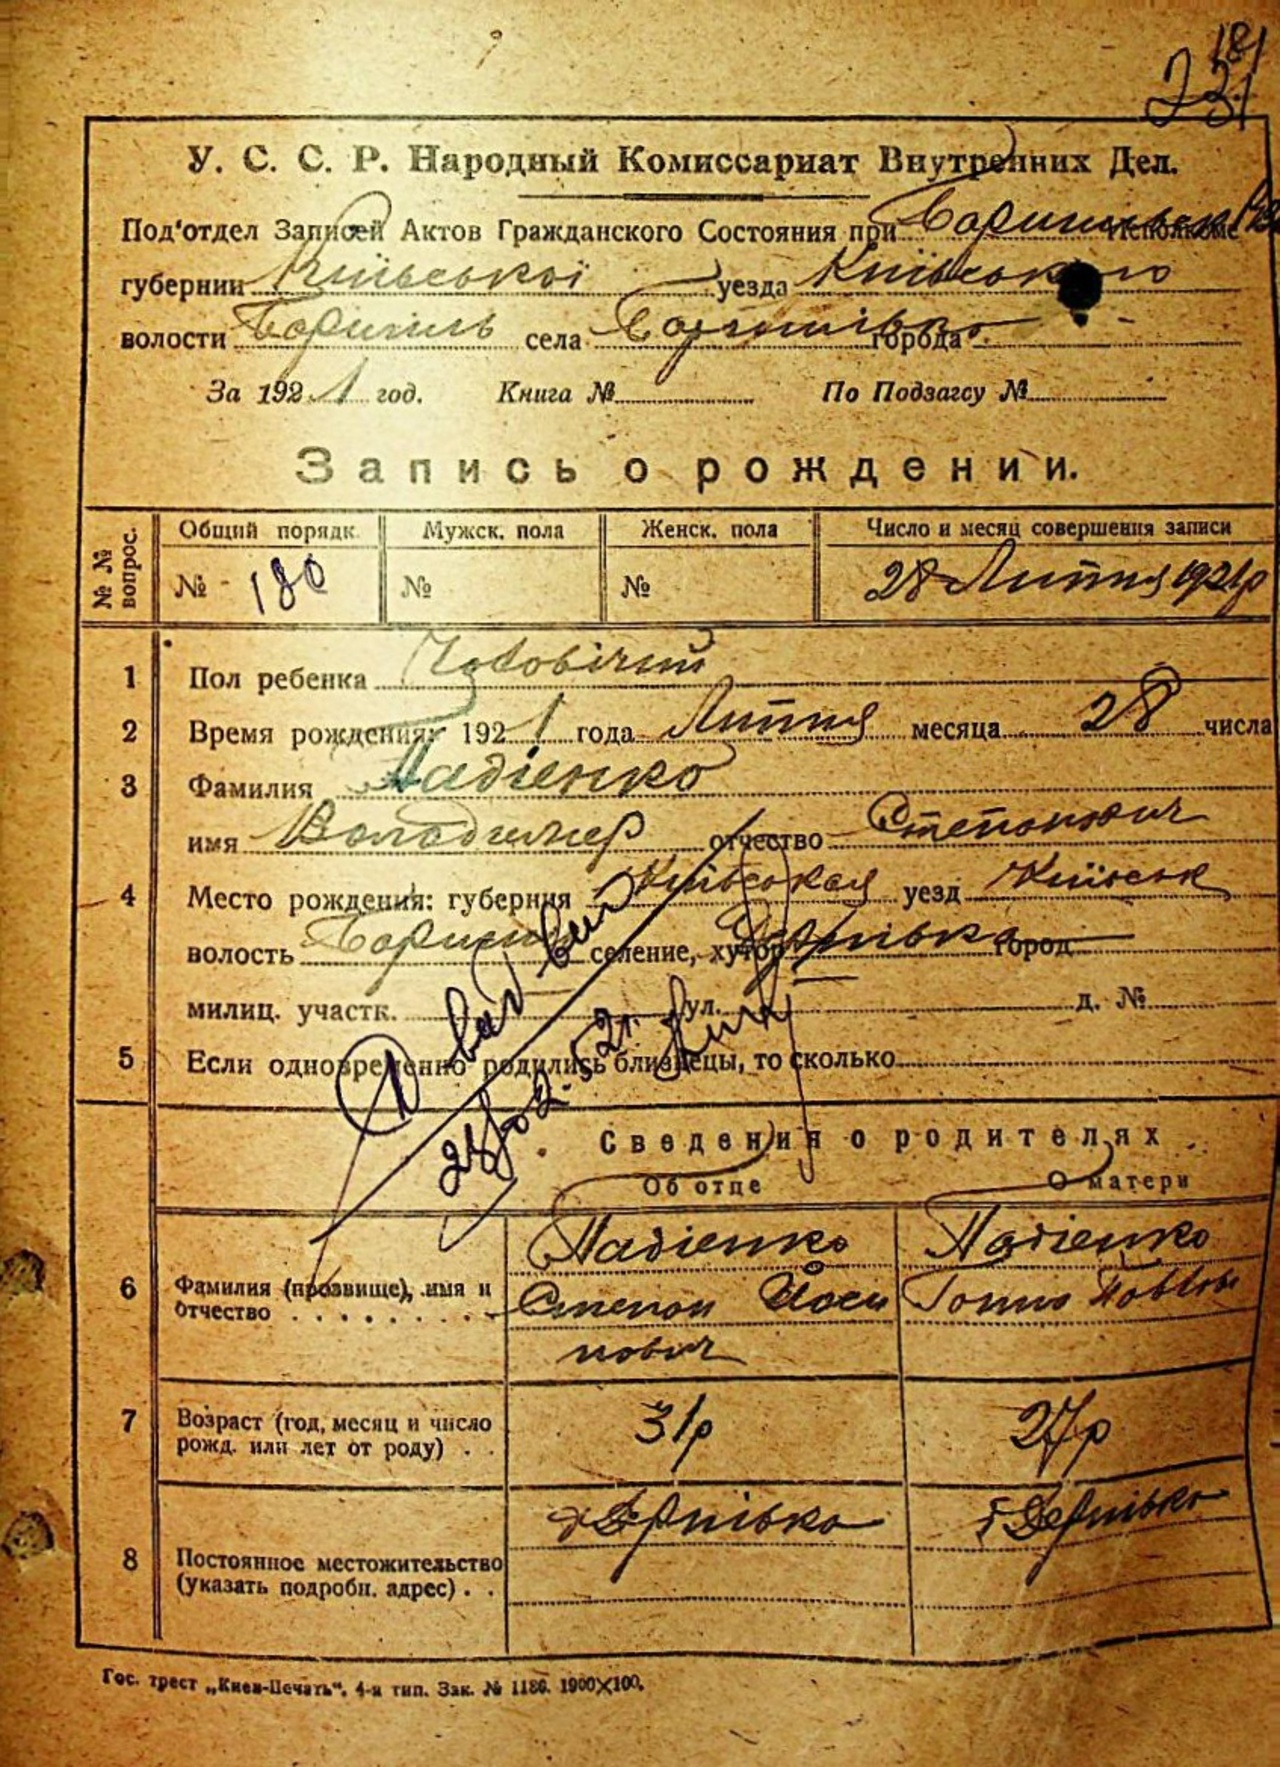 181
231
У. С. С. Р. Народный Комиссариат Внутренних Дел.
Под'отдел Записей Актов Гражданского Состояния при Исполкоме
губернии Київської уезда Київського
волости Бориспіль села города
За 1921 год. Книга № По Подзагсу №
Запись о рождении.
№ № вопрос.
Общий порядк. Мужск. пола Женск. пола Число и месяц совершения записи
№ 180 № № 28 Липня 1921р
1 Пол ребенка Чоловічий
2 Время рождения: 1921 года Липня месяца 28 числа
3 Фамилия Надієнко
имя Володимер отчество Степанович
4 Место рождения: губерния Київская уезд Київськ
волость селение, хутор город
милиц. участк. ул. д. №
5 Если одновременно родились близнецы, то сколько
Сведения о родителях
Об отце О матери
6 Фамилия (прозвище), имя и отчество
Надієнко Надієнко
Степан Йоси
пович
7 Возраст (год, месяц и число рожд. или лет от роду)
31р 27р
8 Постоянное местожительство (указать подробн. адрес)
Гос. трест „Киев-Печать“. 4-я тип. Зак. № 1186. 1900×100.